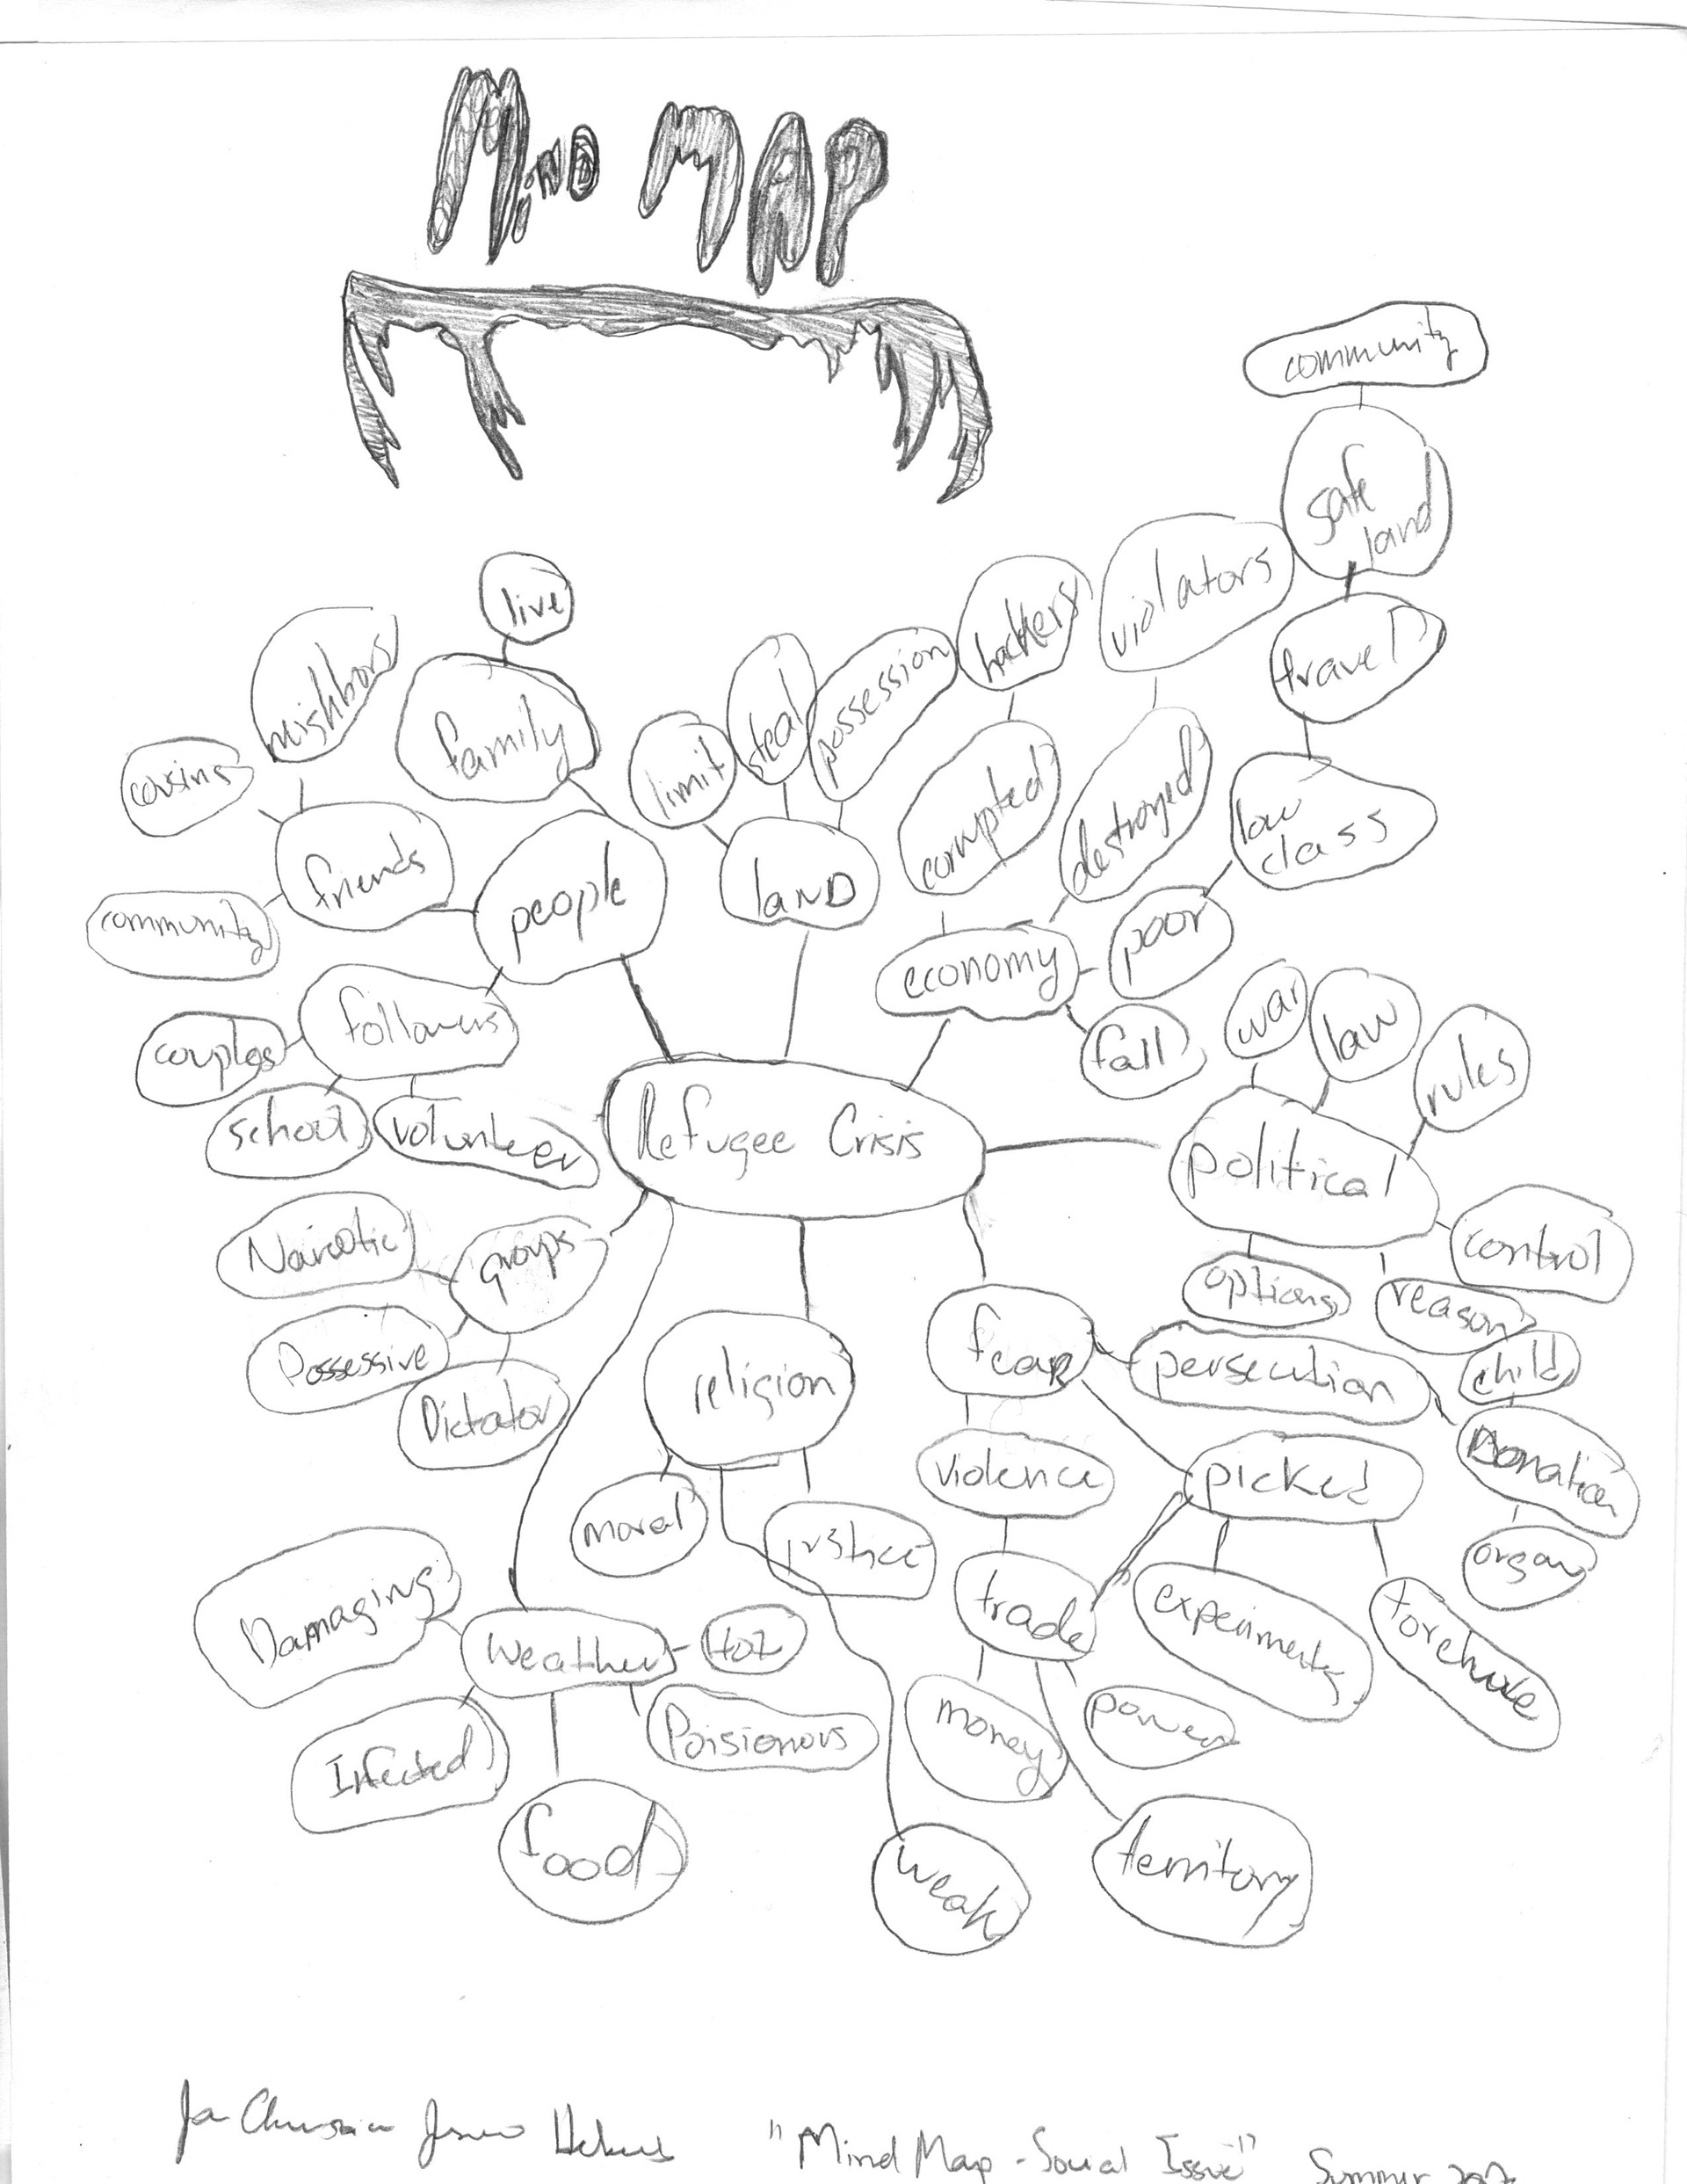 MiND MAP
community
safe
land
violators
travel
hackers
live
neighbors
family
steal
possession
limit
cousins
corrupted
destroyed
low
class
friends
people
LAND
community
economy
poor
followers
fall
war
law
rules
couples
school
volunteer
Refugee Crisis
political
Narcotic
groups
control
options
reason
Possessive
fear
persecution
child
religion
Dictator
Donation
violence
picked
moral
justice
organ
Damaging
trade
experiments
weather
Hot
Infected
Poisionous
money
power
food
weak
territory
"Mind Map - Social Issue" Summer